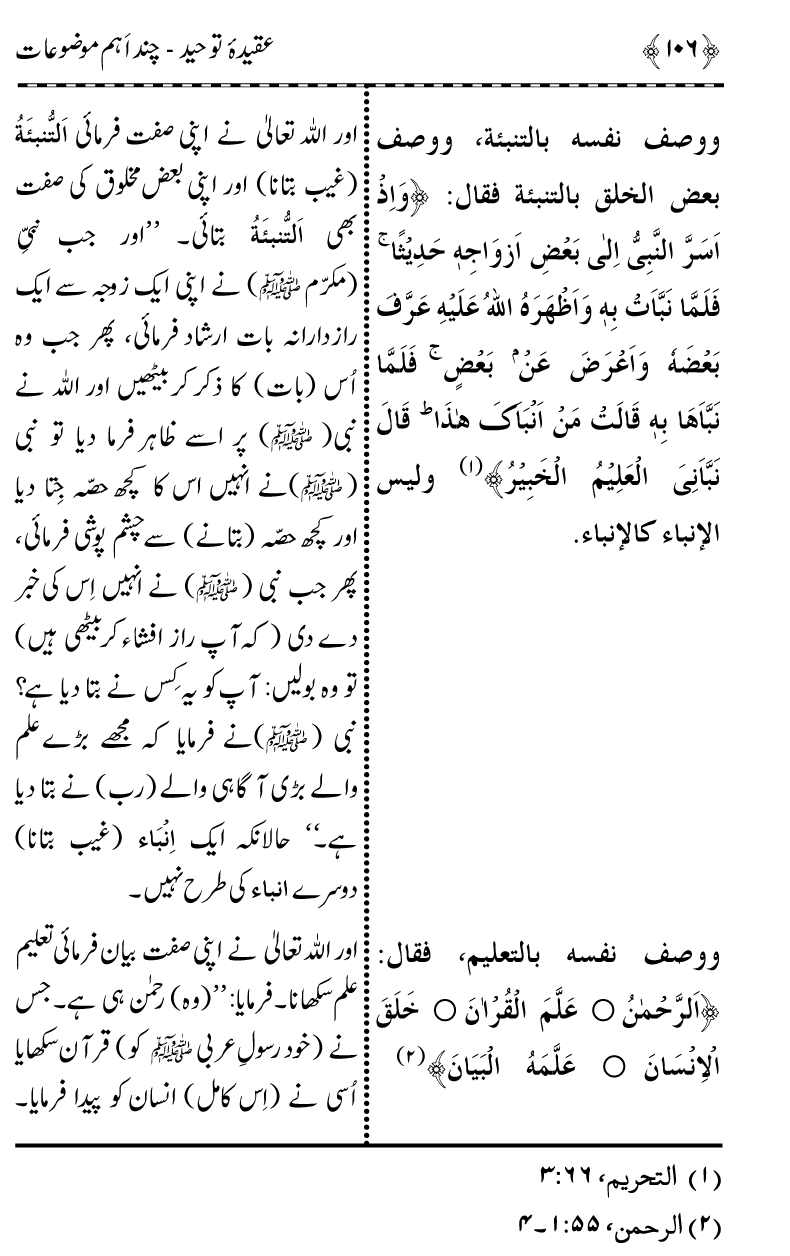 ﴿۱۰۶﴾
عقیدۂ توحید - چند اَہم موضوعات
ووصف نفسه بالتنبئة، ووصف
بعض الخلق بالتنبئة فقال: ﴿وَاِذۡ
اَسَرَّ النَّبِىُّ اِلٰى بَعۡضِ اَزۡوَاجِهٖ حَدِيۡثًا ۚ
فَلَمَّا نَبَّاَتۡ بِهٖ وَاَظۡهَرَهُ اللهُ عَلَيۡهِ عَرَّفَ
بَعۡضَهٗ وَاَعۡرَضَ عَنۡۢ بَعۡضٍ ۚ فَلَمَّا
نَبَّاَهَا بِهٖ قَالَتۡ مَنۡ اَنۡۢبَاَکَ هٰذَا ؕ قَالَ
نَبَّاَنِىَ الۡعَلِيۡمُ الۡخَبِيۡرُ﴾(۱) وليس
الإنباء كالإنباء.
ووصف نفسه بالتعليم، فقال:
﴿اَلرَّحۡمٰنُ ○ عَلَّمَ الۡقُرۡاٰنَ ○ خَلَقَ
الۡاِنۡسَانَ ○ عَلَّمَهُ الۡبَيَانَ﴾(۲)
اور اللہ تعالیٰ نے اپنی صفت فرمائی اَلتُّنبئَةُ
(غیب بتانا) اور اپنی بعض مخلوق کی صفت
بھی اَلتُّنبئَةُ بتائی۔ ’’اور جب نبیِّ
(مکرّم ﷺ) نے اپنی ایک زوجہ سے ایک
رازدارانہ بات ارشاد فرمائی، پھر جب وہ
اُس (بات) کا ذکر کر بیٹھیں اور اللہ نے
نبی( ﷺ) پر اسے ظاہر فرما دیا تو نبی
(ﷺ)نے انہیں اس کا کچھ حصّہ جِتا دیا
اور کچھ حصّہ (بتانے) سے چشم پوشی فرمائی،
پھر جب نبی (ﷺ) نے انہیں اِس کی خبر
دے دی ( کہ آپ راز افشاء کر بیٹھی ہیں)
تو وہ بولیں: آپ کو یہ کِس نے بتا دیا ہے؟
نبی (ﷺ)نے فرمایا کہ مجھے بڑے علم
والے بڑی آگاہی والے (رب) نے بتا دیا
ہے۔‘‘ حالانکہ ایک اِنۡبَاء (غیب بتانا)
دوسرے انباء کی طرح نہیں۔
اور اللہ تعالیٰ نے اپنی صفت بیان فرمائی تعلیم
علم سکھانا۔ فرمایا: ’’(وہ) رحمٰن ہی ہے۔ جس
نے (خود رسولِ عربی ﷺ کو) قرآن سکھایا
اُسی نے (اِس کامل) انسان کو پیدا فرمایا۔
(۱) التحریم، ۶۶:۳
(۲) الرحمن، ۵۵:۱۔۴